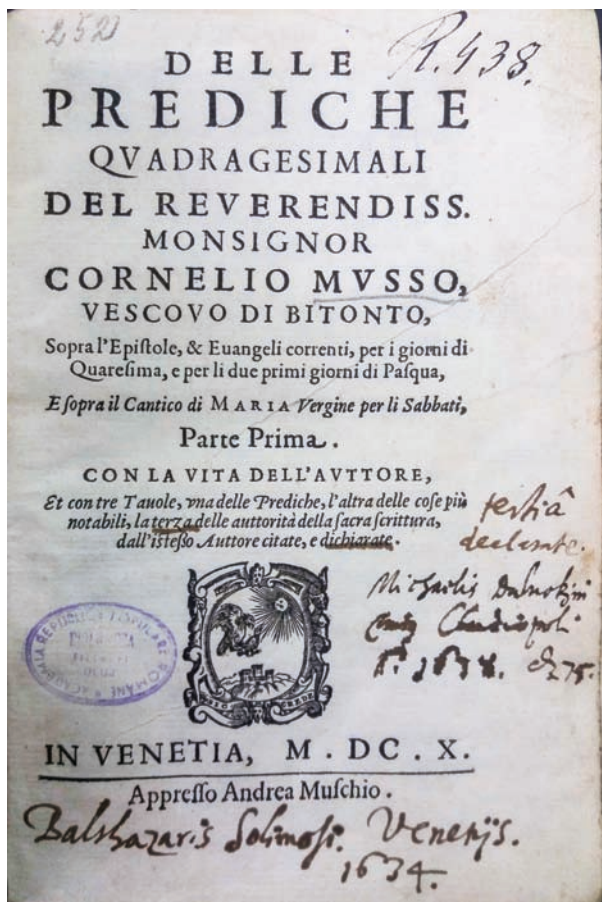 252
R.438.
DELLE
PREDICHE
QVADRAGESIMALI
DEL REVERENDISS.
MONSIGNOR
CORNELIO MVSSO,
VESCOVO DI BITONTO,
Sopra l'Epiſtole, & Euangeli correnti, per i giorni di
Quareſima, e per li due primi giorni di Paſqua,
E ſopra il Cantico di MARIA Vergine per li Sabbati,
Parte Prima.
CON LA VITA DELL'AVTTORE,
Et con tre Tauole, vna delle Prediche, l'altra delle coſe più
notabili, la terza delle auttorità della ſacra ſcrittura,
dall'isteſſo Auttore citate, e dichiarate.
Michaelis
1634.
ACADEMIA REPUBLICII POPULARE ROMÂNE
IN VENETIA, M. DC. X.
Appreſſo Andrea Muſchio.
Balthazaris Solimosi. Venetijs.
1634.